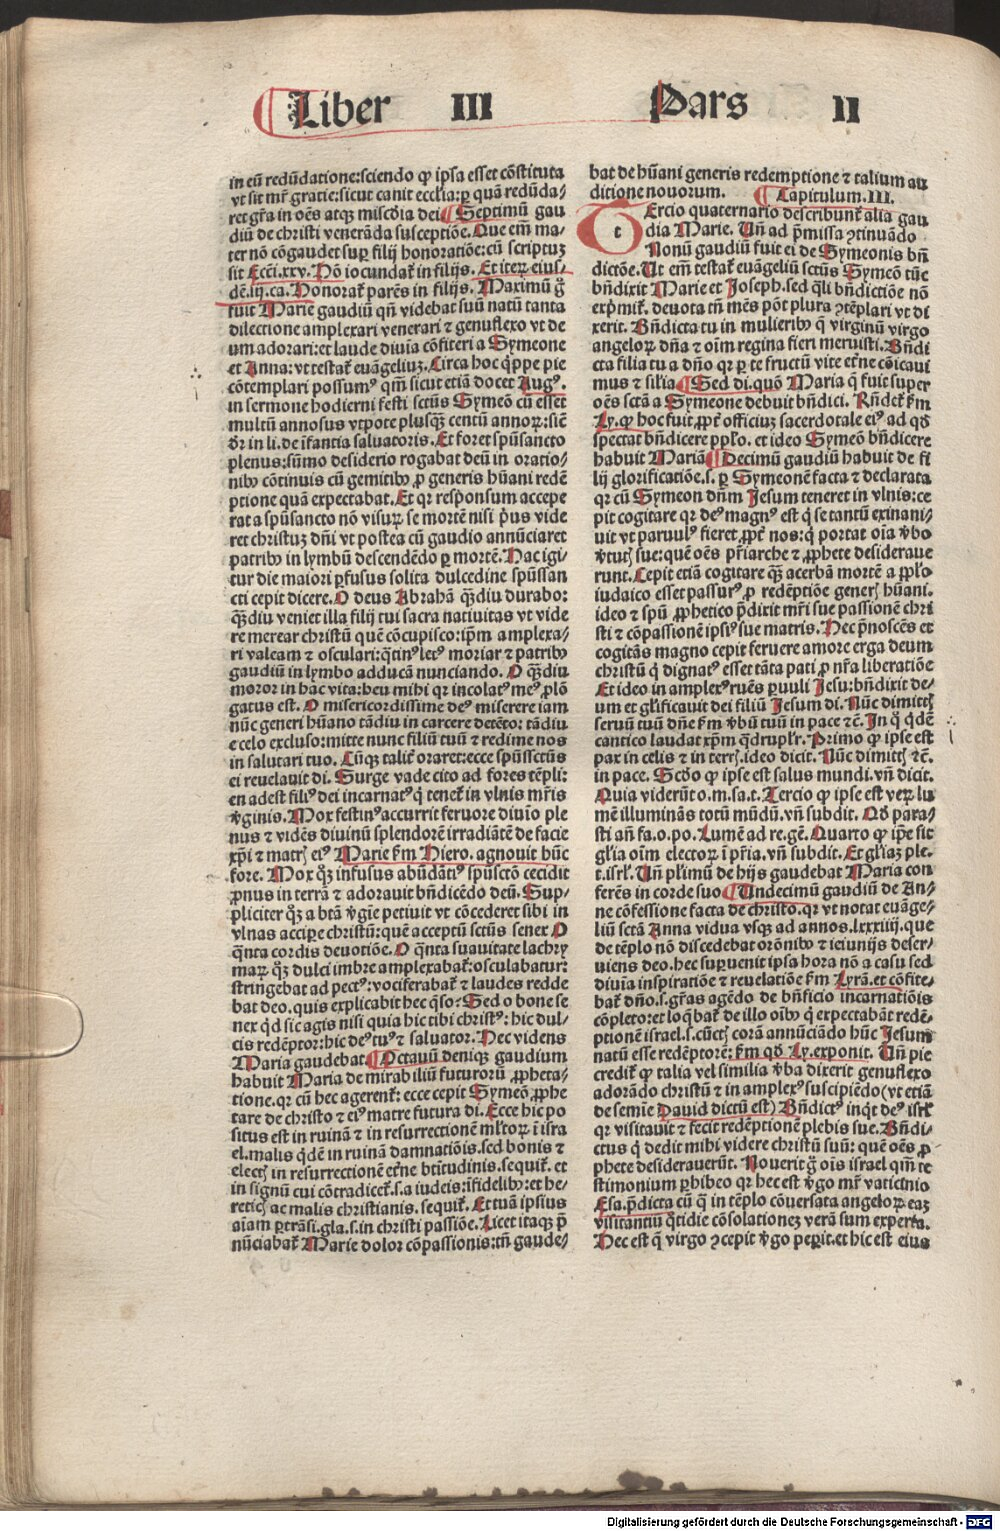 Liber III Pars II
in eū redūdatione:sciendo ꝙ ipsa esset cōstituta
vt sit mr̄ gratie:sicut canit ecclīa:ꝑ quā redūda-
ret gr̄a in oēs atqꝫ misc̄dia dei Septimū gau
diū de christi venerāda susceptiōe. Que em̄ ma-
ter nō cōgaudet suꝑ filij honoratiōe:cū scriptuꝫ
sit Ecci.xxv. Hō iocundat᷑ in filijs. Et iteꝝ eius-
dē.iij.ca. Honorat᷑ parēs in filijs. Maximū g̊
fuit Marie gaudiū qn̄ videbat suū natū tanta
dilectione amplexari venerari ⁊ genuflexo vt de
um adorari:et laude diuīa cōfiteri a Symeone
et Anna:vt testat᷑ euāgeliuꝫ. Circa hoc q̄ppe pie
cōtemplari possumꝰ qm̄ sicut etiā docet Augꝰ.
in sermone hodierni festi sctūs Symeō cū esset
multū annosus vtpote plusqꝫ centū annoꝝ:sic̄
dr̄ in li. de īfantia saluatoris. Et foret spūsancto
plenus:sūmo desiderio rogabat deū in oratio-
nibꝰ cōtinuis cū gemitibꝰ ꝓ generis hūani redē
ptione quā expectabat. Et qꝛ responsum accepe
rat a spūsancto nō visuꝝ se mortē nisi pͥus vide
ret christuꝫ dn̄i vt postea cū gaudio annūciaret
patribꝰ in lymbū descendēdo ꝑ mortē. Hac igi
tur die maiori ꝑfusus solita dulcedine spūssan
cti cepit dicere. O deus Abrahā qꝫdiu durabo:
qꝫdiu veniet illa filij tui sacra natiuitas vt vide
re merear christū quē cōcupisco:ip̄m amplexa-
ri valeam ⁊ osculari:q̄tinꝰ letꝰ moriar ⁊ patribꝰ
gaudiū in lymbo adducā nunciando. O qꝫdiu
moror in hac vita:heu mihi qꝛ incolatꝰ meꝰ ꝓlō
gatus est. O misericordissime deꝰ miserere iam
nūc generi hūano tādiu in carcere detēto: tādiu
e celo excluso:mitte nunc filiū tuū ⁊ redime nos
in salutari tuo. Cūqꝫ talit᷑ oraret:ecce spūssctūs
ei reuelauit di. Surge vade cito ad fores tēpli:
en adest filiꝰ dei incarnatꝰ q̇ tenet᷑ in vlnis mr̄is
ꝟginis. Mox festinꝰ accurrit feruore diuīo ple
nus ⁊ vidēs diuinū splendorē irradiātē de facie
xp̄i ⁊ matrꝭ eiꝰ Marie ẜm Hiero. agnouit hūc
fore. Mox qꝫ infusus abūdātiꝰ spūsctō cecidit
ꝓnus in terrā ⁊ adorauit bn̄dicēdo deū. Sup-
pliciter qꝫ a btā ꝟgīe petiuit vt cōcederet sibi in
vlnas acciꝑe christū:quē acceptū sctūs senex O
q̄nta cordis deuotiōe. O q̄nta suauitate lachry
maꝝ qꝫ dulci imbre amplexabat᷑:osculabatur:
stringebat ad pectꝰ:vociferabat᷑ ⁊ laudes redde
bat deo. quis explicabit hec q̄so? Sed o bone se
nex qͥd sic agis nisi quia hic tibi christꝰ: hic dul-
cis redēptor:hic deꝰ tuꝰ ⁊ saluator. Hec videns
Maria gaudebat Octauū deniqꝫ gaudium
habuit Maria de mirabiliū futurorū ꝓpheta-
tione.qꝛ cū hec agerent᷑: ecce cepit Symeō ꝓphe
tare de christo ⁊ eiꝰ matre futura di. Ecce hic po
situs est in ruinā ⁊ in resurrectionē ml̄toꝝ ī isra
el.malis qͥdē in ruinā damnatiōis.sed bonis ⁊
electꝭ in resurrectionē et̄ne btītudinis.sequit᷑. et
in signū cui cōtradicet᷑.s.a iudeis:īfidelibꝰ:et he-
reticꝭ ac malis christianis.sequit᷑. Et tuā ipsius
aīam ꝑtrāsi.gla.s.in christi passiōe. Licet itaqꝫ p̄
nūciabat᷑ Marie dolor cōpassionis:tn̄ gaude-
bat de hūani generis redemptione ⁊ talium au
ditione nouorum. Capitulum.III.
Tercio quaternario describunt᷑ alia gau
dia Marie. Un̄ ad p̄missa ꝯtinuādo
Nonū gaudiū fuit ei de Symeonis bn̄
dictōe. Ut em̄ testat᷑ euāgeliū sctūs Symeō tūc
bn̄dixit Marie et Joseph.sed q̄li bn̄dictiōe nō
exp̄mit᷑. deuota tn̄ mēs pōt plura ꝯtēplari vt di
xerit. Bn̄dicta tu in mulieribꝰ q̄ virginū virgo
angeloꝝ dn̄a ⁊ oīm regina fieri meruisti. Bn̄di
cta filia tu a dn̄o qꝛ ꝑ te fructū vite et̄ne cōicaui
mus ⁊ filia Sed di.quō Maria q̄ fuit super
oēs sctā a Symeone debuit bn̄dici. Rn̄det᷑ ẜm
Ly.ꝙ hoc fuit ꝓpt᷑ officiuꝫ sacerdotale eiꝰ ad qd̄
spectat bn̄dicere pplo. et ideo Symeō bn̄dicere
habuit Mariā Decimū gaudiū habuit de fi
lij glorificatiōe.s. ꝑ Symeonē facta ⁊ declarata
qꝛ cū Symeon dn̄m Jesum teneret in vlnis:ce
pit cogitare qꝛ deꝰ magnꝰ est q̇ se tantū exinani-
uit vt paruulꝰ fieret ꝓpt᷑ nos:q̇ portat oīa ꝟbo
ꝟtutꝭ sue:quē oēs pr̄iarche ⁊ ꝓphete desideraue
runt. Cepit etiā cogitare qꝫ acerbā mortē a pplo
iudaico esset passurꝰ ꝓ redēptiōe generꝭ hūani.
ideo ⁊ spū ꝓphetico p̄dixit mr̄i sue passionē chri
sti ⁊ cōpassionē ipsiꝰ sue matris. Hec p̄noscēs et
cogitās magno cepit feruere amore erga deum
christū q̇ dignatꝰ esset tāta pati ꝓ nr̄a liberatiōe
Et ideo in amplexꝰ ruēs ꝑuuli Jesu:bn̄dixit de-
um et gl̄ificauit dei filiū Jesum di. Nūc dimittꝭ
seruū tuū dn̄e ẜm ꝟbū tuū in pace ⁊c̄. In q̊ qͥdē
cantico laudat xp̄m q̄drupl̄r. Primo ꝙ ipse est
pax in celis ⁊ in terrꝭ.ideo dicit. Nūc dimittꝭ ⁊c̄.
in pace. Scd̄o ꝙ ipse est salus mundi.vn̄ dicit.
Quia viderūt o.m.sa.t. Tercio ꝙ ipse est veꝝ lu
mē illuminās totū mūdū.vn̄ subdit. Qd̄ para-
sti an̄ fa.o.po. Lumē ad re.gē. Quarto ꝙ ip̄e sit
gl̄ia oīm electoꝝ ī pr̄ia.vn̄ subdit. Et gl̄iaꝫ ple.
t.isrl̄. Un̄ pl̄imū de hijs gaudebat Maria con
ferēs in corde suo Undecimū gaudiū de An-
ne cōfessione facta de christo.qꝛ vt notat euāge-
liū sctā Anna vidua vsqꝫ ad annos.lxxxiiij.que
de tēplo nō discedebat orōnibꝰ ⁊ ieiunijs deser-
uiens deo.hec suꝑuenit ipsa hora nō a casu sed
diuīa inspiratiōe ⁊ reuelatiōe ẜm Lyrā.et cōfite-
bat᷑ dn̄o.s.gr̄as agēdo de bn̄ficio incarnatiōis
cōpleto:et loq̄bat᷑ de illo oībꝰ q̇ expectabāt redē-
ptionē israel.s.cūctꝭ corā annūciādo hūc Jesum
natū esse redēptorē: ẜm qd̄ Ly.exponit. Un̄ pie
credit᷑ ꝙ talia vel similia ꝟba dixerit genuflexo
adorādo christū ⁊ in amplexꝰ suscipiēdo (vt etiā
de semie Dauid dictū est) Bn̄dictꝰ inq̇t deꝰ isrl̄
qꝛ visitauit ⁊ fecit redēptionē plebis sue. Bn̄di-
ctus q̇ dedit mihi videre christū suū: quē oēs ꝓ
phete desiderauerūt. Nouerit g̊ oīs israel qm̄ te
stimonium ꝑhibeo qꝛ hec est ꝟgo mr̄ vaticinio
Esa.p̄dicta cū q̄ in tēplo cōuersata angeloꝝ eaꝫ
visitantiū q̊tidie cōsolationeꝫ verā sum experta.
Hec est q̄ virgo ꝯcepit ꝟgo peꝑit.et hic est eius
Digitalisierung gefördert durch die Deutsche Forschungsgemeinschaft - DFG